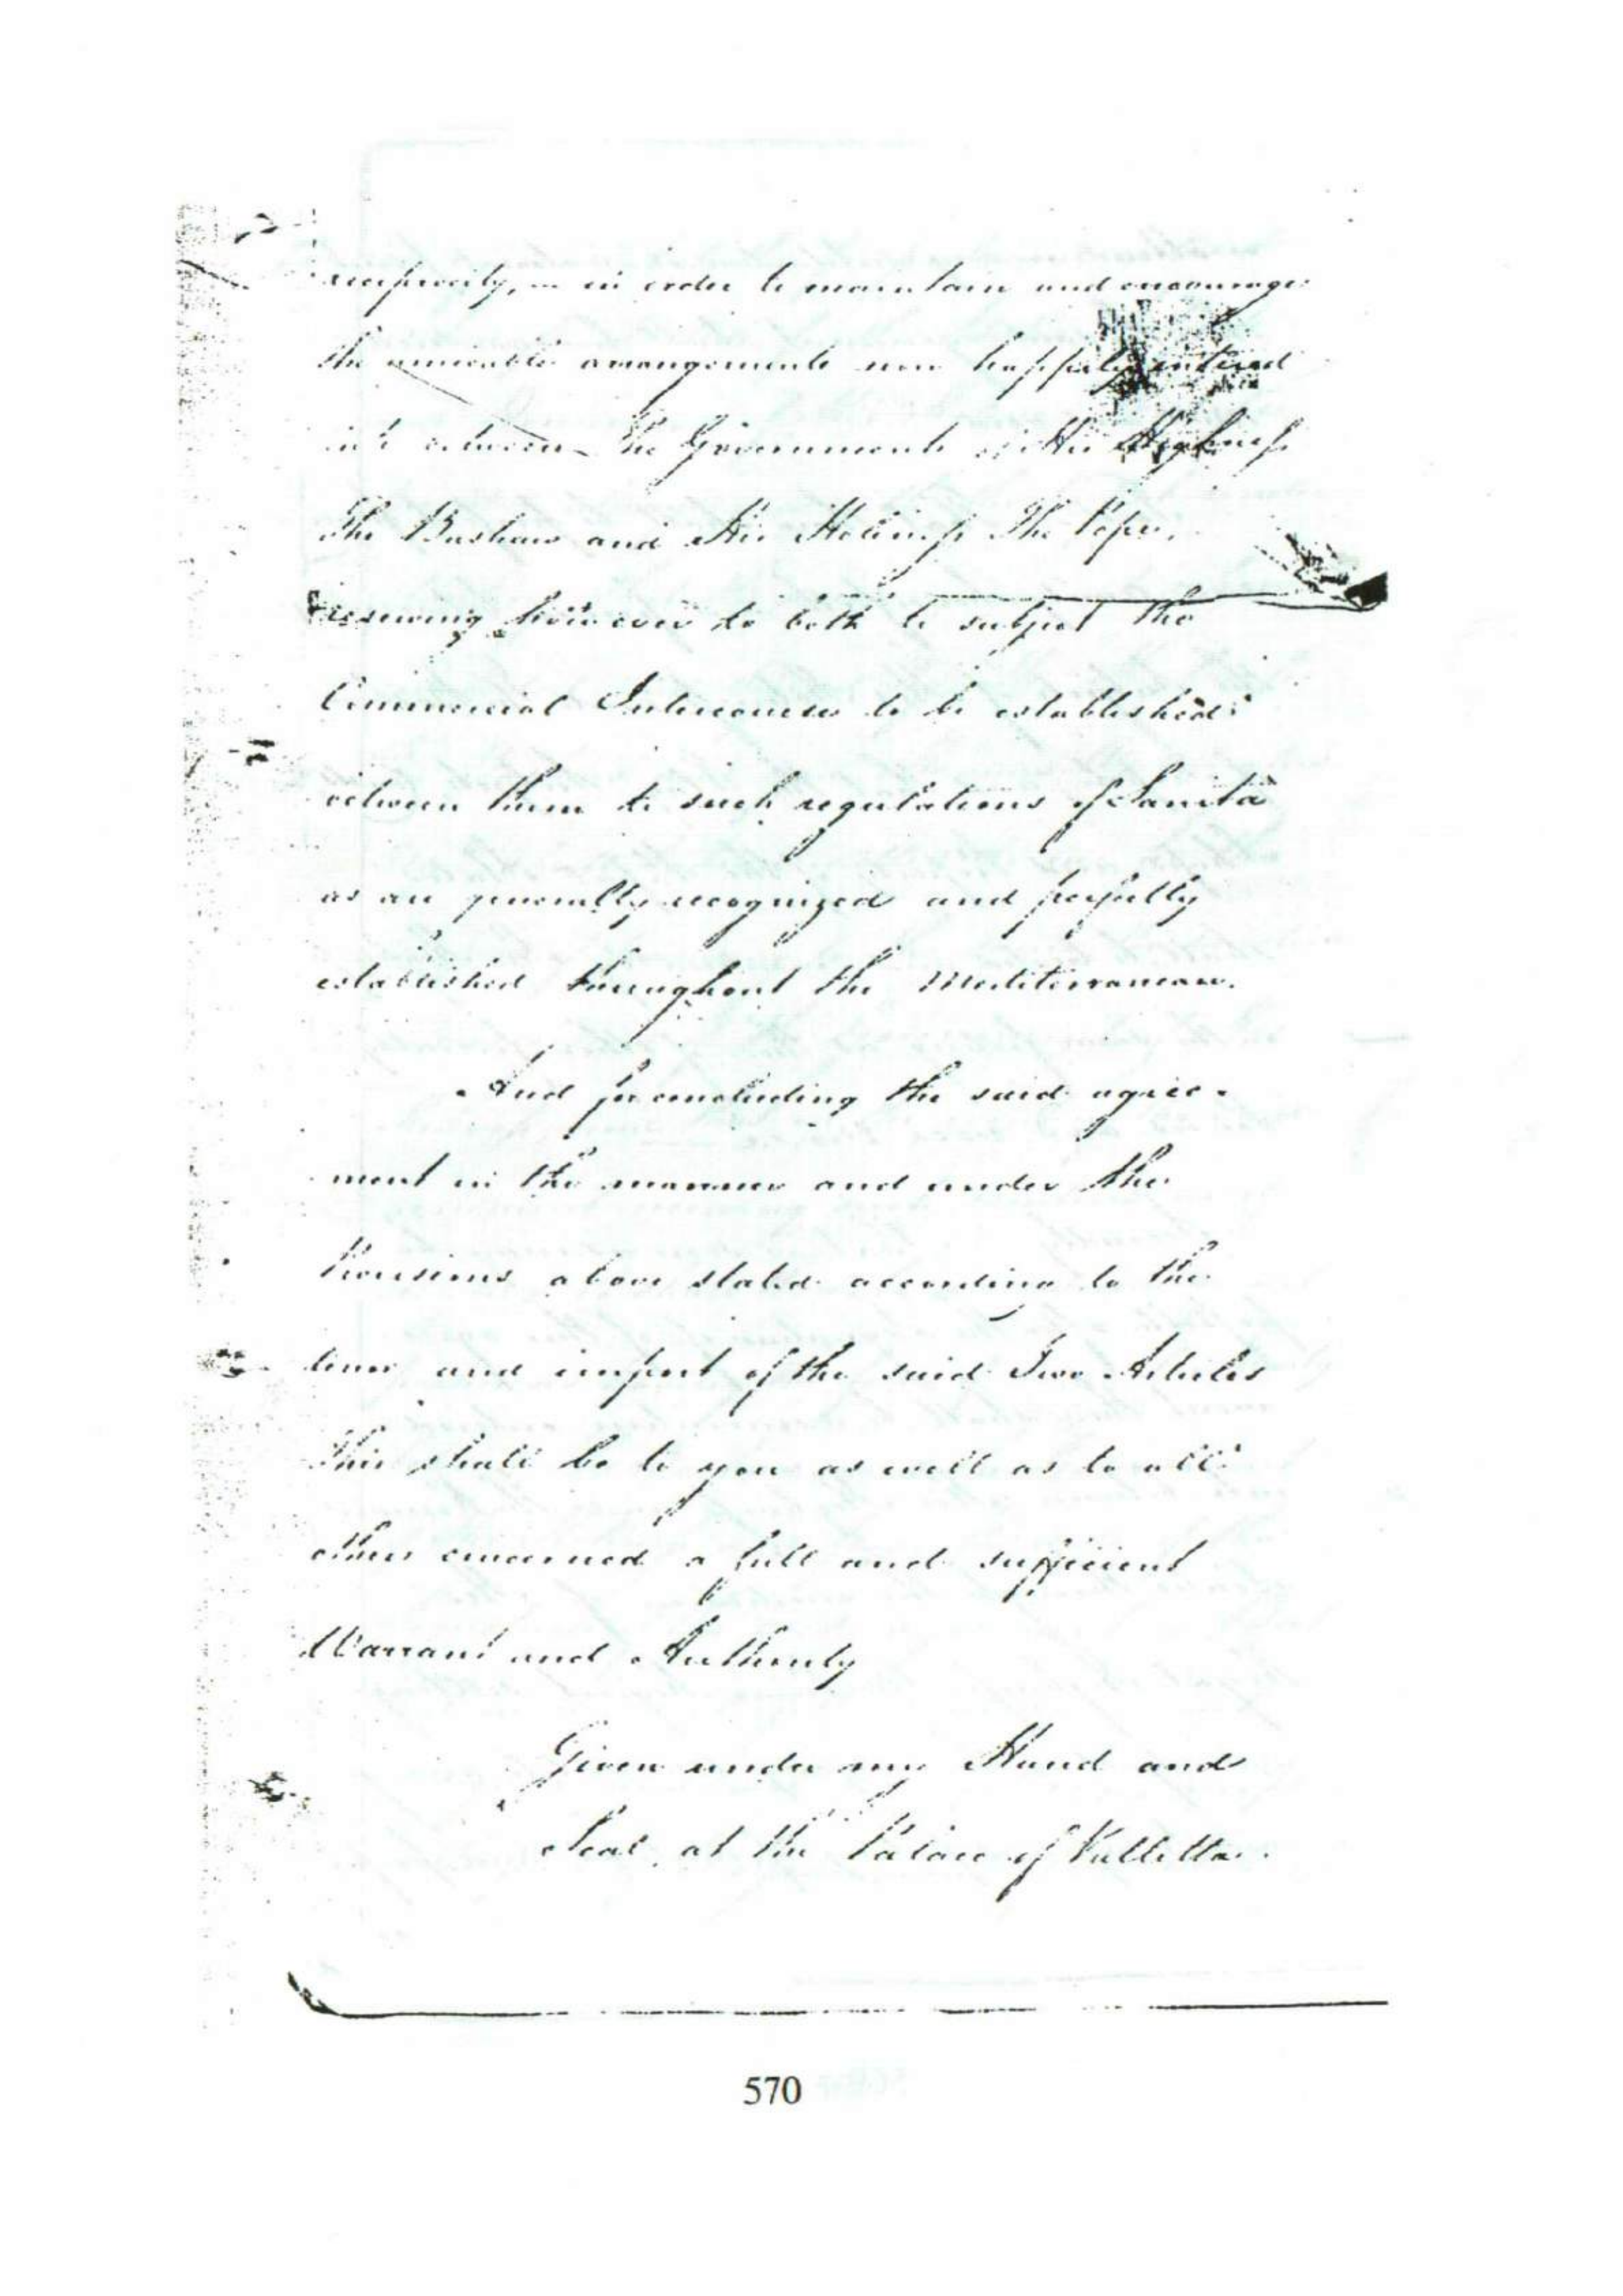 reciprocity, in order to maintain and encourage
the amicable arrangements now happily entered
into between the Governments of His Highness
The Bashaw and His Holiness The Pope,
reserving however to both to subject the
Commercial Intercourse to be established
between them to such regulations of Sanità
as are generally recognized and perfectly
established throughout the Mediterranean.
And for concluding the said agree-
ment in the manner and under the
Provisions above stated according to the
tenor and import of the said Two Articles
This shall be to you as well as to all
others concerned a full and sufficient
Warrant and Authority
Given under my Hand and
Seal, at the Palace of Valletta.
570